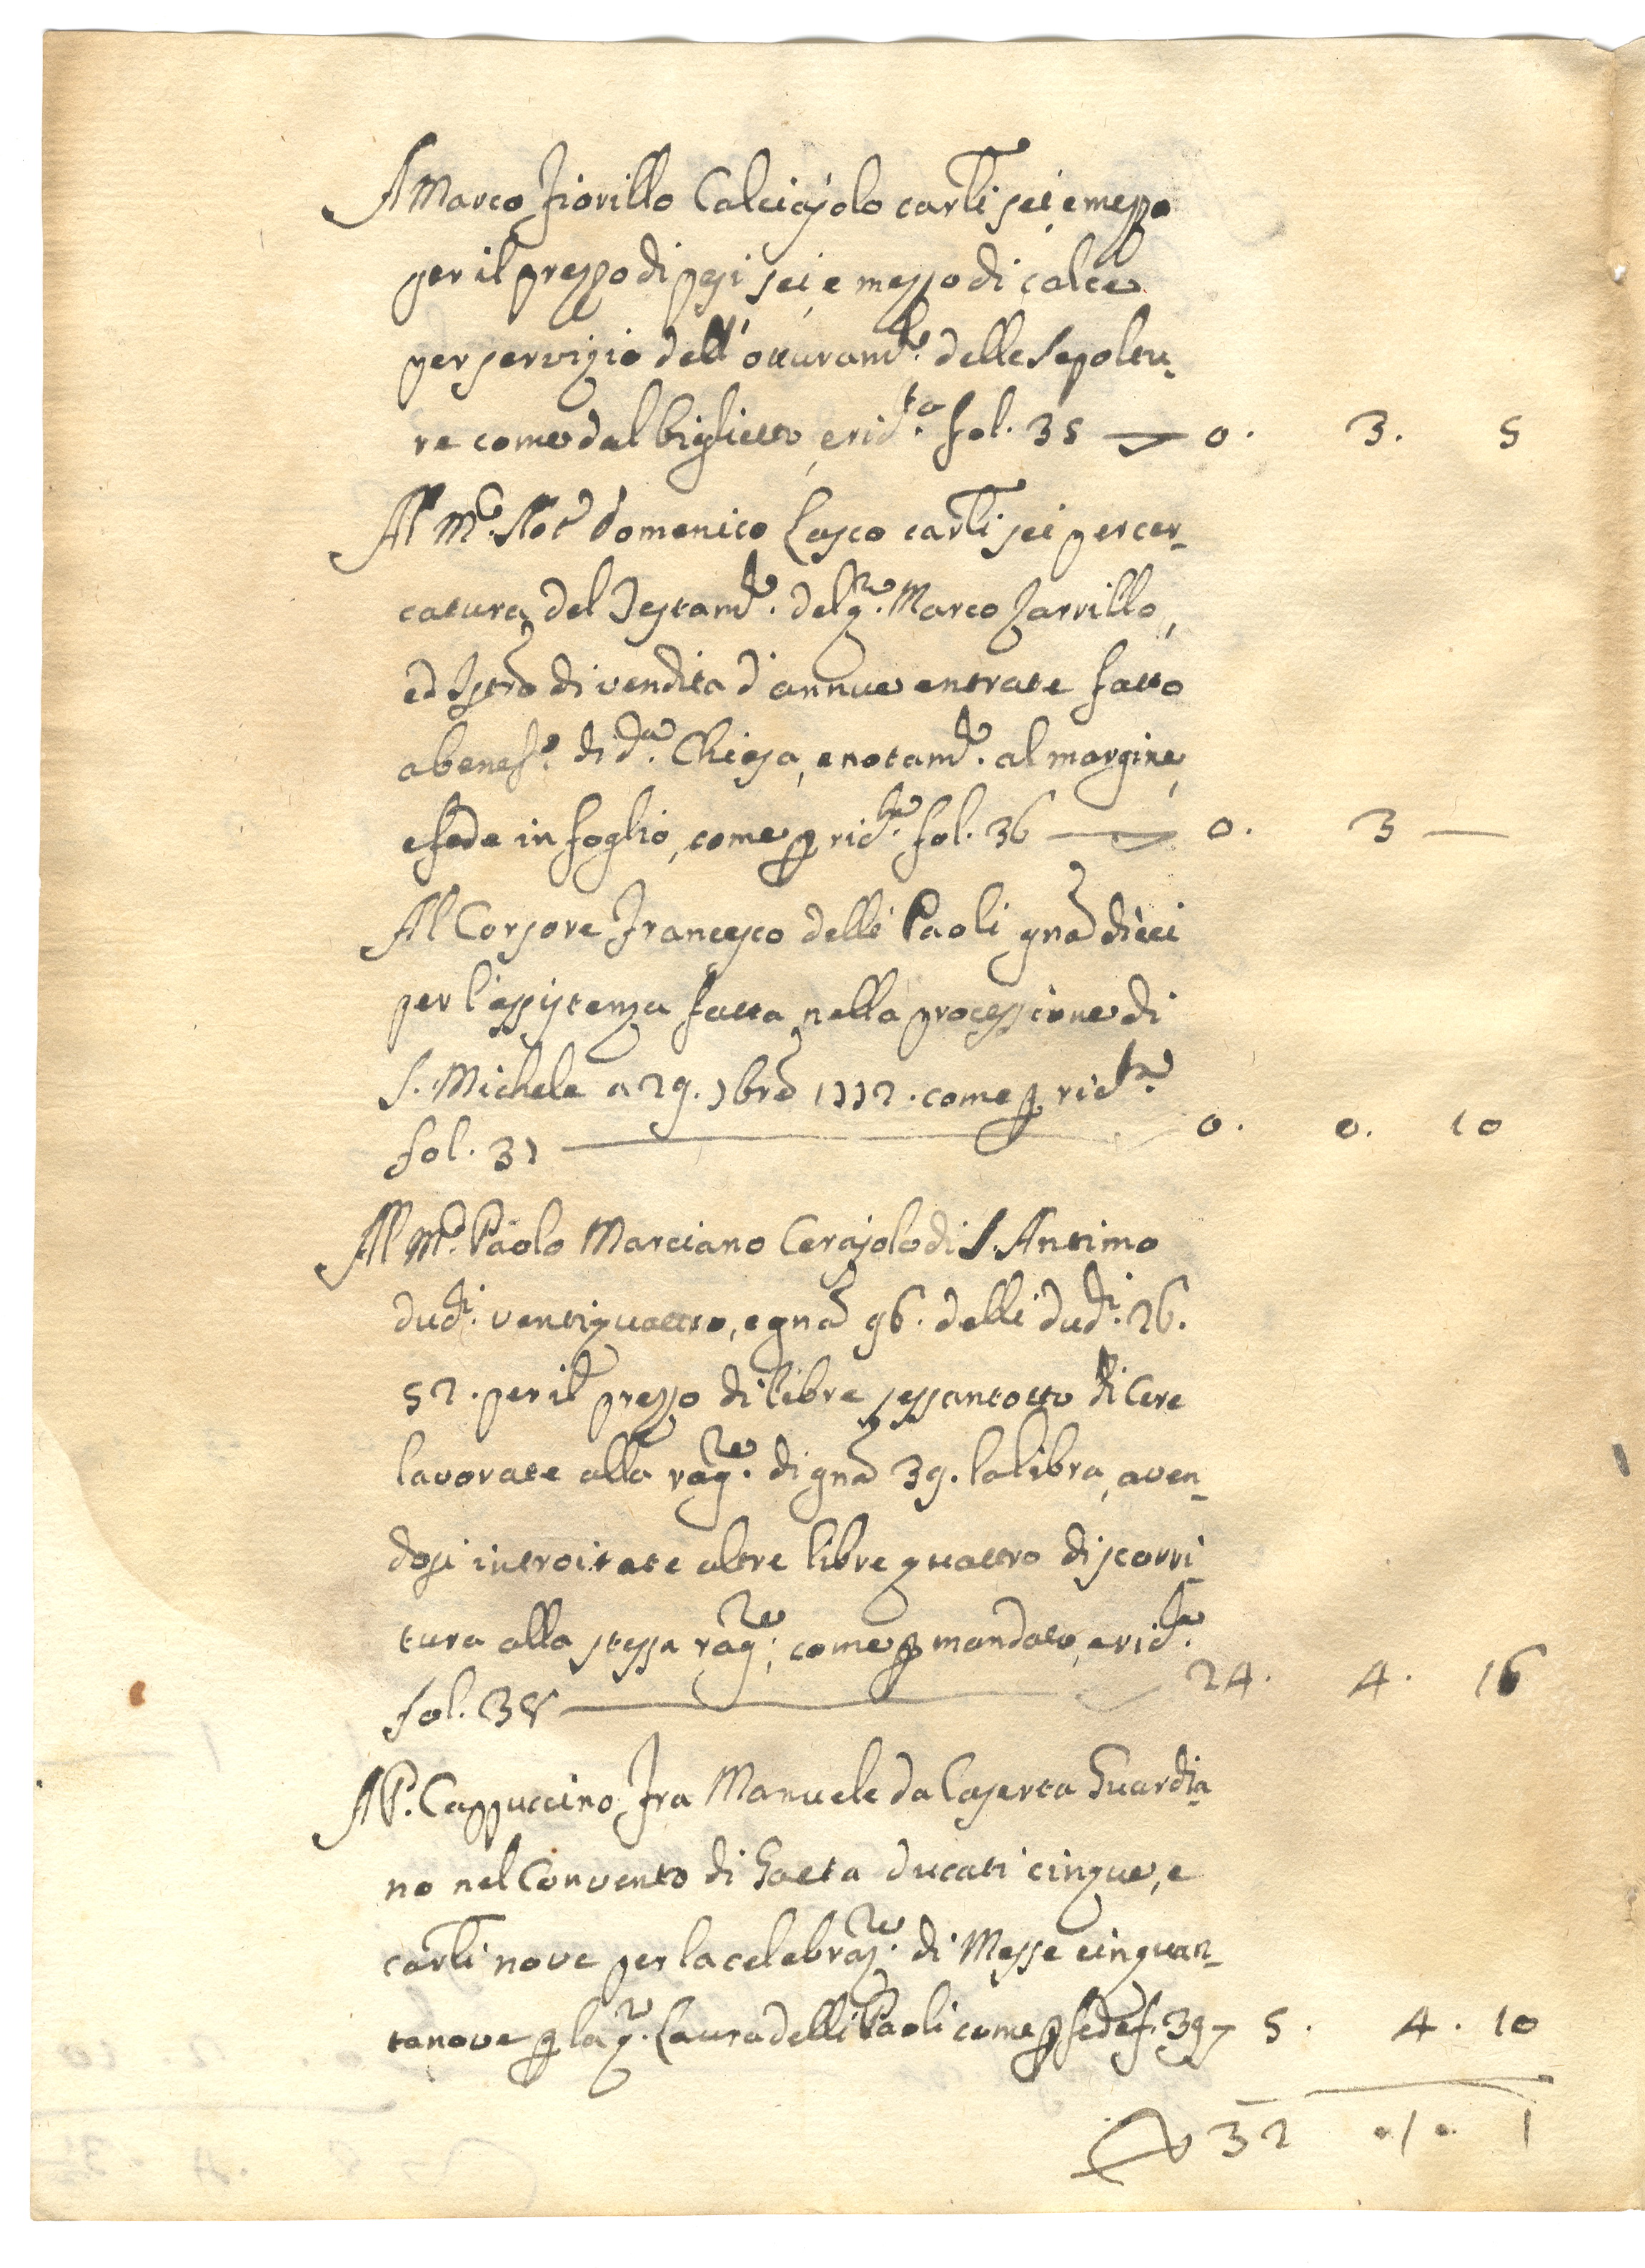 A Marco Fiorillo Calciajolo carli sei, e mezzo
per il prezzo di pesi sei, e mezzo di calce
per servizio dell'otturam.to delle Sepoltu-
re come dal biglietto, e rid.ta fol. 35 0. 3. 5
Al M.co Not.r Domenico Lasco carli sei per cer-
catura del Testam.to del q.m Marco Zarrillo,
ed Istro di vendita d'annue entrate fatto
a benef.o di d.a Chiesa, e notam.to al margine,
e fede in foglio, come p rid.ta fol. 36 0. 3 —
Al Corsore Francesco delli Paoli gna dieci
per l'assistenza fatta nella processione di
S. Michele a 29. 7bre 1772. come p rid.ta
fol. 37 0. 0. 10
Al M.co Paolo Marciano Cerajolo di S. Antimo
duc.ti ventiquattro, e gna 96. delli duc.ti 26.
52. per il prezzo di libre sessantotto di Cere
lavorate alla rag.ne di gna 39. la libra, aven-
dosi introitate altre libre quattro di scorri-
tura alla stessa rag.ne, come p mandato, e rid.ta
fol. 38 24. 4. 16
A P. Cappuccino Fra Manuele da Caserta Guardia-
no nel Convento di Gaeta ducati cinque, e
carli nove per la celebraz.ne di Messe cinquan-
tanove p la q.m Laura delli Paoli come p fede f. 39 5. 4. 10
32 ./. 1